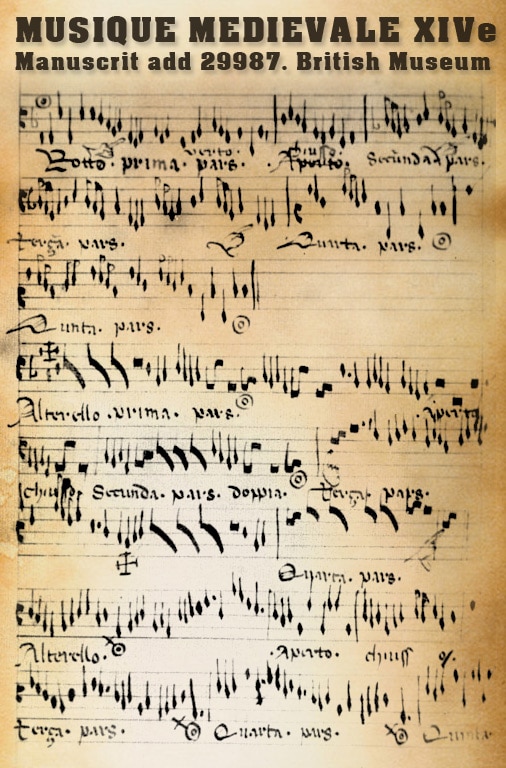 MUSIQUE MEDIEVALE XIVe
Manuscrit add 29987. British Museum
verto. chiusso
Rotta. prima. pars. Aperto. Secunda pars.
Terça. pars. Quarta. pars.
Quinta. pars.
Alterello. prima. pars. Aperto
chiusso Secunda. pars. doppia. Terça. pars.
Quarta. pars.
Alterello. Aperto. chiuss
Terça. pars. Quarta. pars. Quinta